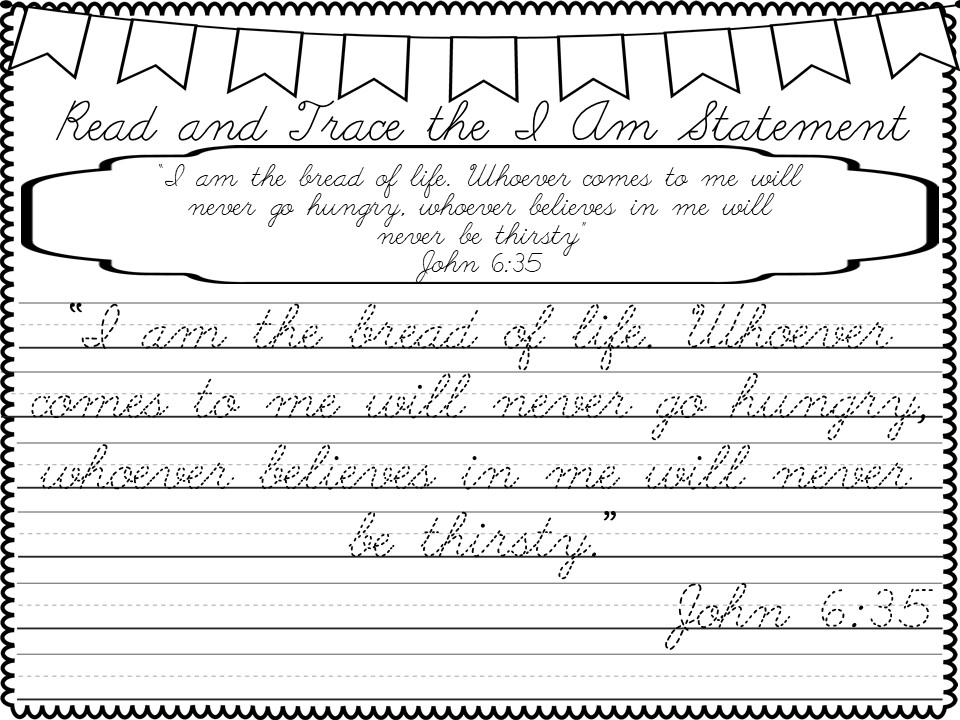 Read and Trace the I Am Statement
"I am the bread of life. Whoever comes to me will
never go hungry, whoever believes in me will
never be thirsty"
John 6:35
“I am the bread of life. Whoever
comes to me will never go hungry,
whoever believes in me will never
be thirsty.”
John 6:35